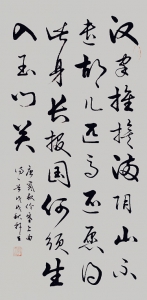 汉家旌满阴山不
遣胡儿匹马还愿得
此身长报国何须生
入玉门关
唐戴叔伦塞上曲
诗一首戊戌秋